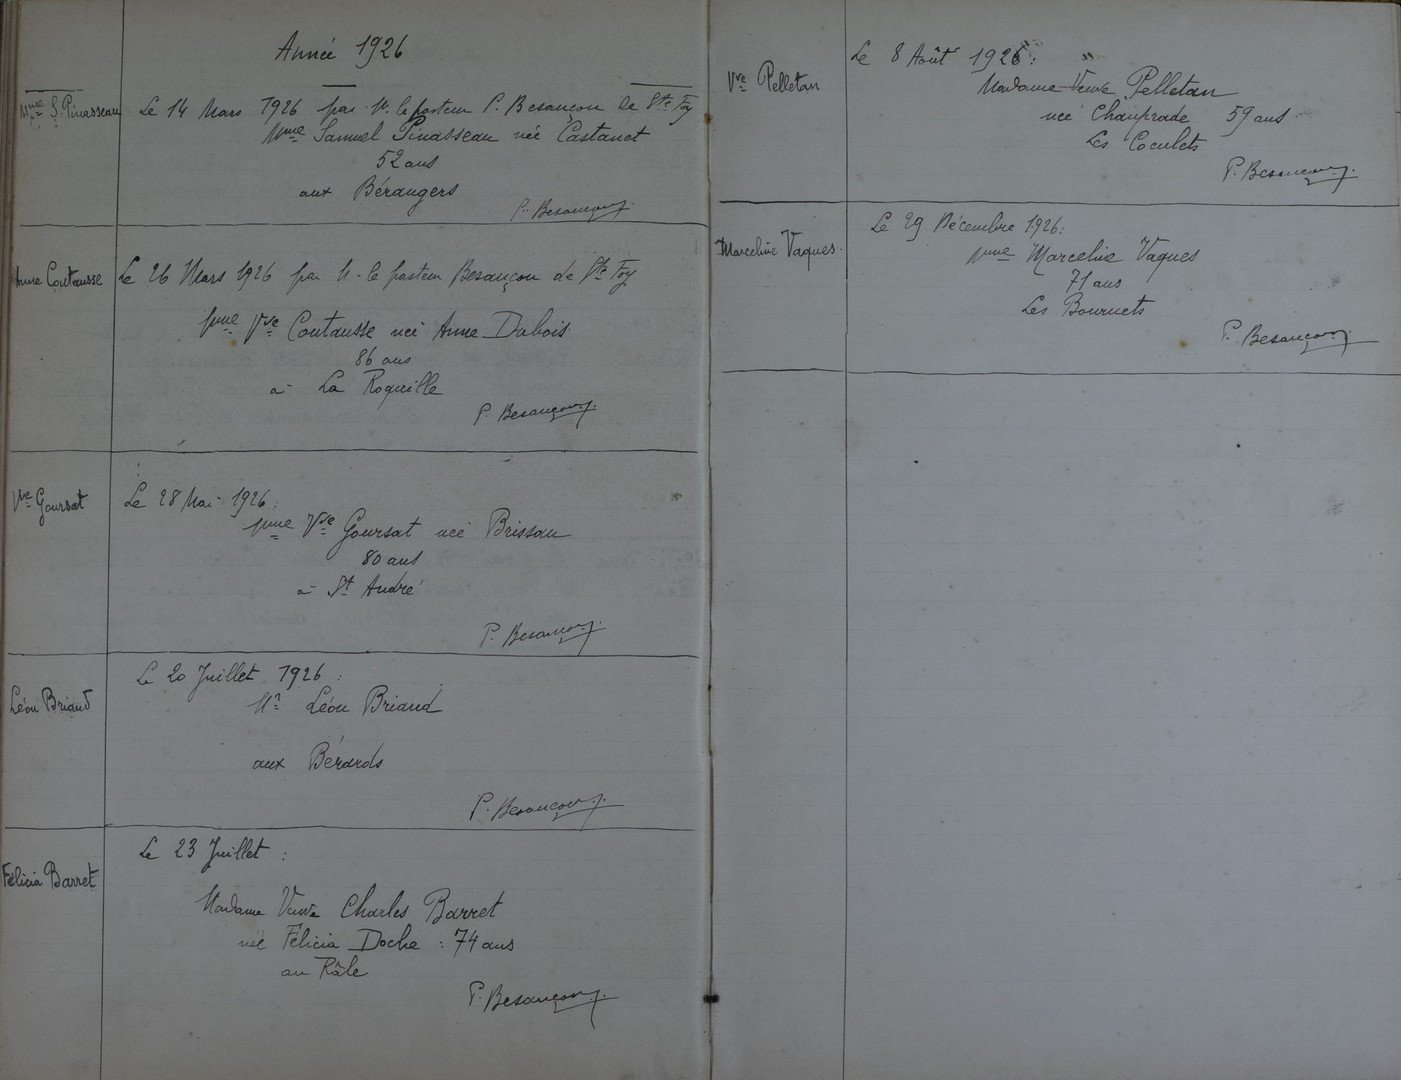 Année 1926
Mme S. Pinasseau
Le 14 Mars 1926 par M. le pasteur P. Besançon de Ste Foy
Mme Samuel Pinasseau née Castanet
52 ans
aux Bérangers
P. Besançon
Anne Coutausse
Le 26 Mars 1926 par M. le pasteur Besançon de Ste Foy
Mme Vve Coutausse née Anne Dubois
86 ans
à La Roquille
P. Besançon
Vve Goursat
Le 28 Mai 1926 :
Mme Vve Goursat née Brisseau
80 ans
à St André
P. Besançon
Léon Briand
Le 20 Juillet 1926 :
Mr Léon Briand
aux Bérards
P. Besançon
Félicia Barret
Le 23 Juillet :
Madame Veuve Charles Barret
née Félicia Doche : 74 ans
au Râle
P. Besançon
Vve Pelletan
Le 8 Août 1926 :
Madame Veuve Pelletan
née Chauprade 59 ans
Les Coculets
P. Besançon
Marceline Vaques.
Le 29 Décembre 1926 :
Mme Marceline Vaques
71 ans
Les Bournets
P. Besançon